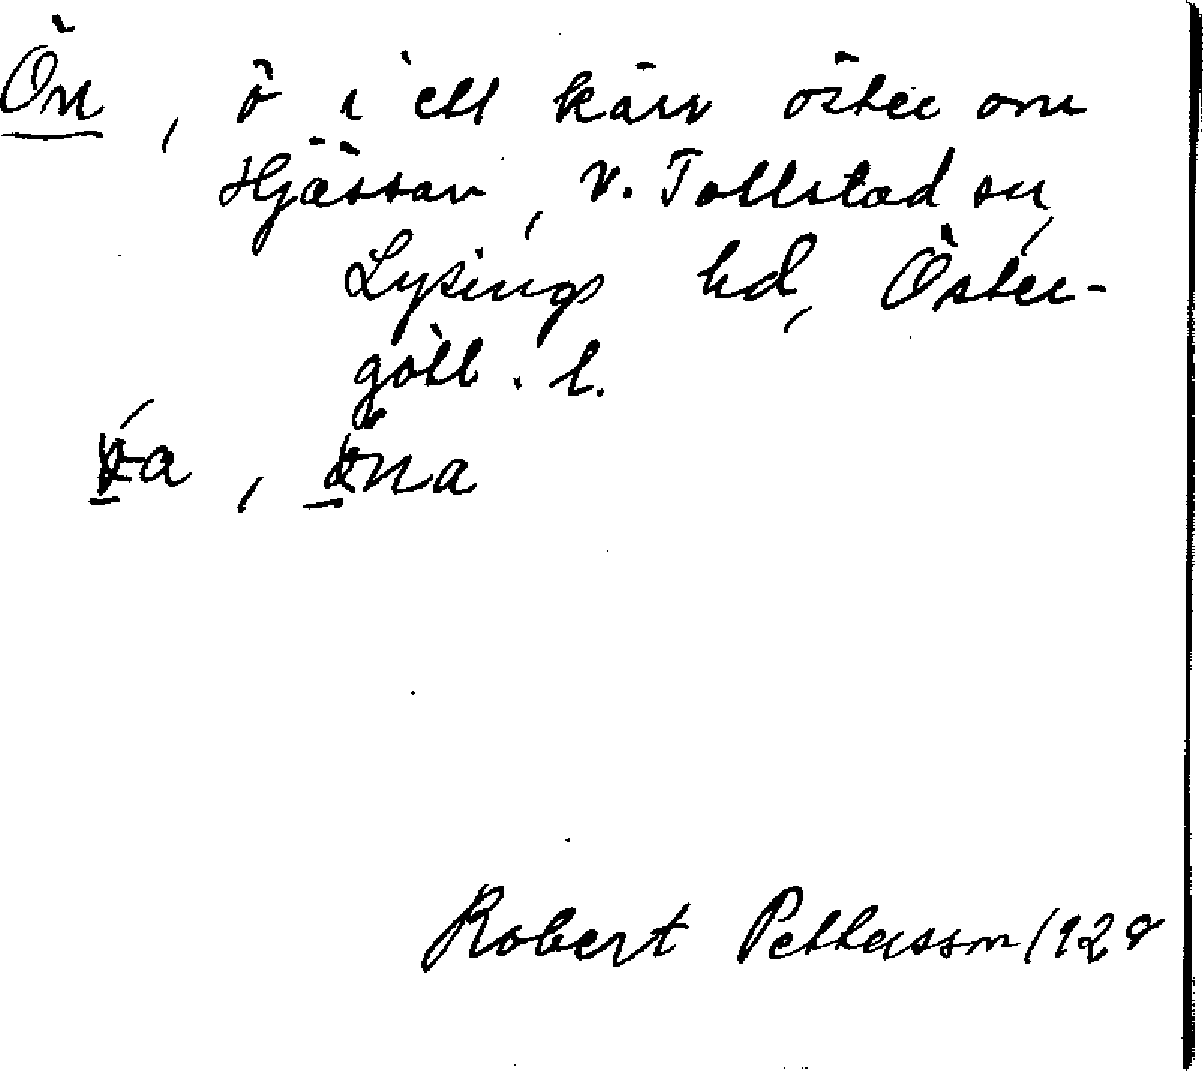 Ön, ö i ett kärr öster om
Hjässan, V. Tollstad sn,
Lysings hd, Öster-
götl. l.
Robert Pettersson 1928